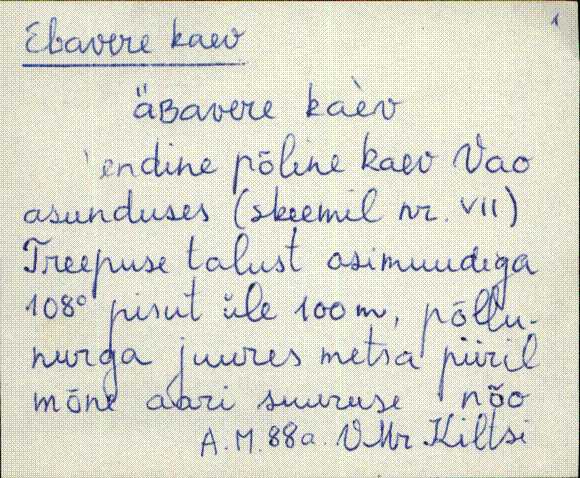 1
Ebavere kaev
äBavere kàev
endine põline kaev Vao
asunduses (skeemil nr. VII)
Treepuse talust asimuudiga
108° pisut üle 100 m, põllu-
nurga juures metsa piiril
mõne aari suuruse nõo
A.M. 88a. VMr Kiltsi